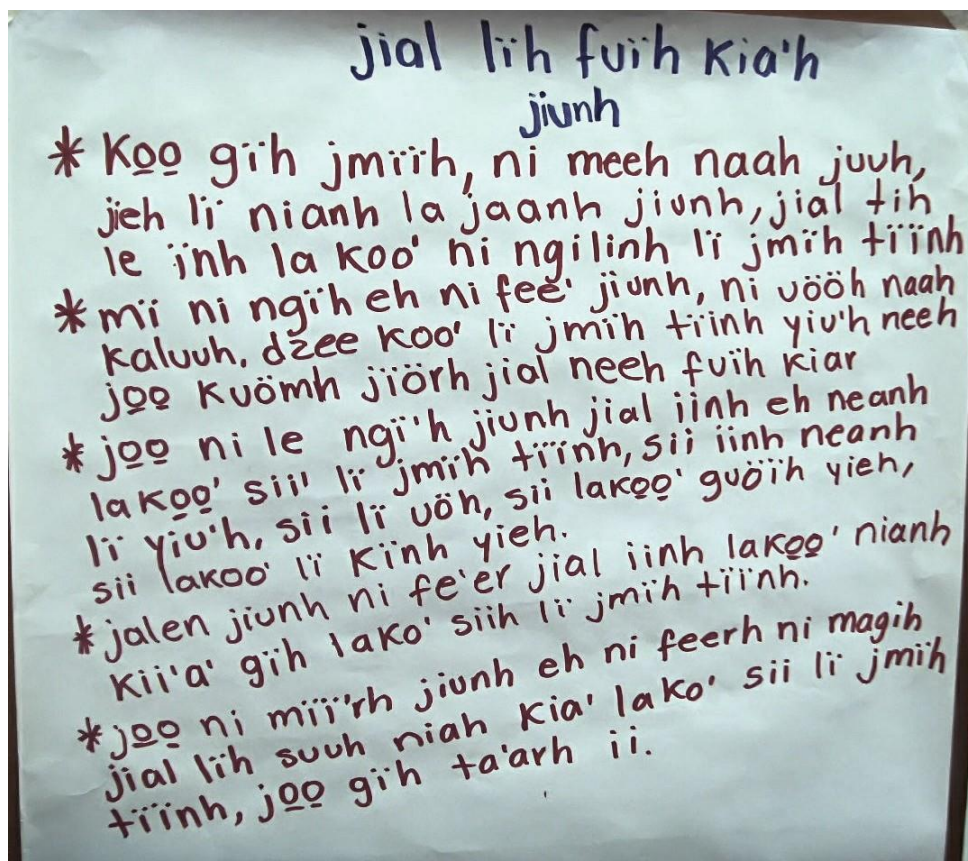 jial lïh fuïh kia'h
jiunh
* Ko̲o̲ gïh jmïïh, ni meeh naah juuh,
jieh lï nianh la jaanh jiunh, jial tïh
le ïnh la koo' ni ngilinh lï jmïh tïïnh
* mï ni ngïh eh ni fee' jiunh, ni vööh naah
kaluuh. dzee koo' lï jmïh tïïnh yiu'h neeh
jo̲o̲ kuömh jïörh jial neeh fuïh kiar
* jo̲o̲ ni le ngï'h jiunh jial iinh eh neanh
lako̲o̲' sii' lï jmïh tïïnh, sii iinh neanh
lï yiu'h, sii lï vöh, sii lako̲o̲' guöïh yieh,
sii lakoo' lï kïnh yieh.
* jalen jiunh ni fe'er jial iinh lako̲o̲' nianh
kii'a' gïh lako' siih lï jmïh tïïnh.
* jo̲o̲ ni mïï'rh jiunh eh ni feerh ni magih
jial lïh suuh niah kia' lako' sii lï jmïh
tïïnh, jo̲o̲ gïh ta'arh ii.